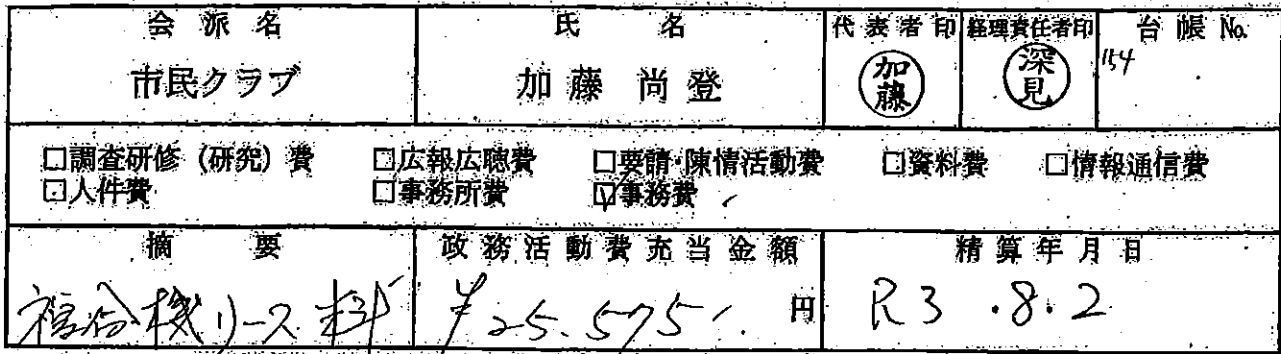 会派名 氏名 代表者印 経理責任者印 台帳No.
市民クラブ 加藤 尚登 加藤 深見 154
□調査研修(研究)費 □広報広聴費 □要請・陳情活動費 □資料費 □情報通信費
□人件費 □事務所費 ☑事務費
摘要 政務活動費充当金額 精算年月日
複合機リース料 ¥25.575 円 R3.8.2